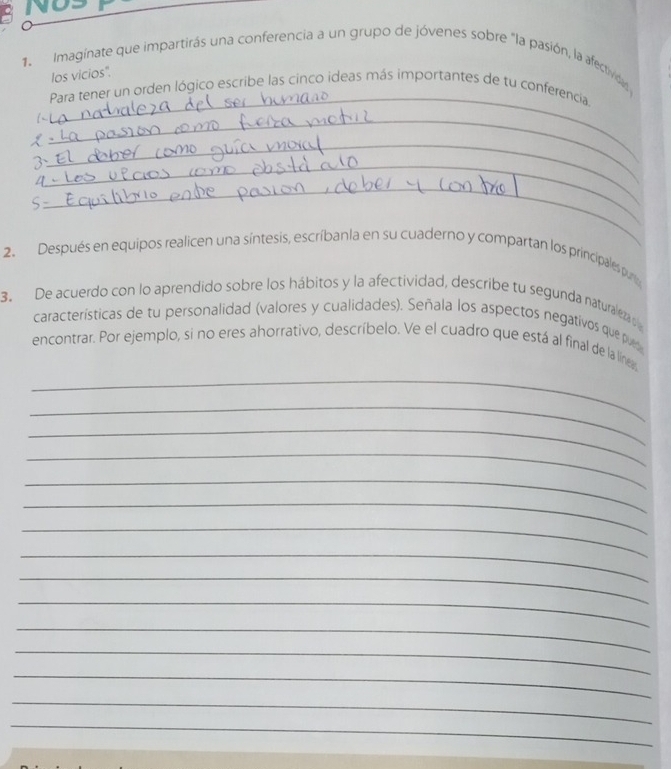 1. Imagínate que impartirás una conferencia a un grupo de jóvenes sobre "la pasión, la afectividad y
los vicios".
Para tener un orden lógico escribe las cinco ideas más importantes de tu conferencia.
1.- La natraleza del ser humano
2.- La pasion como fuerza motriz
3.- El deber como guia moral
4.- Los vicios como obstáculo
5= Equilibrio entre pasion, deber y control
2. Después en equipos realicen una síntesis, escríbanla en su cuaderno y compartan los principales
3. De acuerdo con lo aprendido sobre los hábitos y la afectividad, describe tu segunda naturaleza
características de tu personalidad (valores y cualidades). Señala los aspectos negativos que
encontrar. Por ejemplo, si no eres ahorrativo, descríbelo. Ve el cuadro que está al final de la